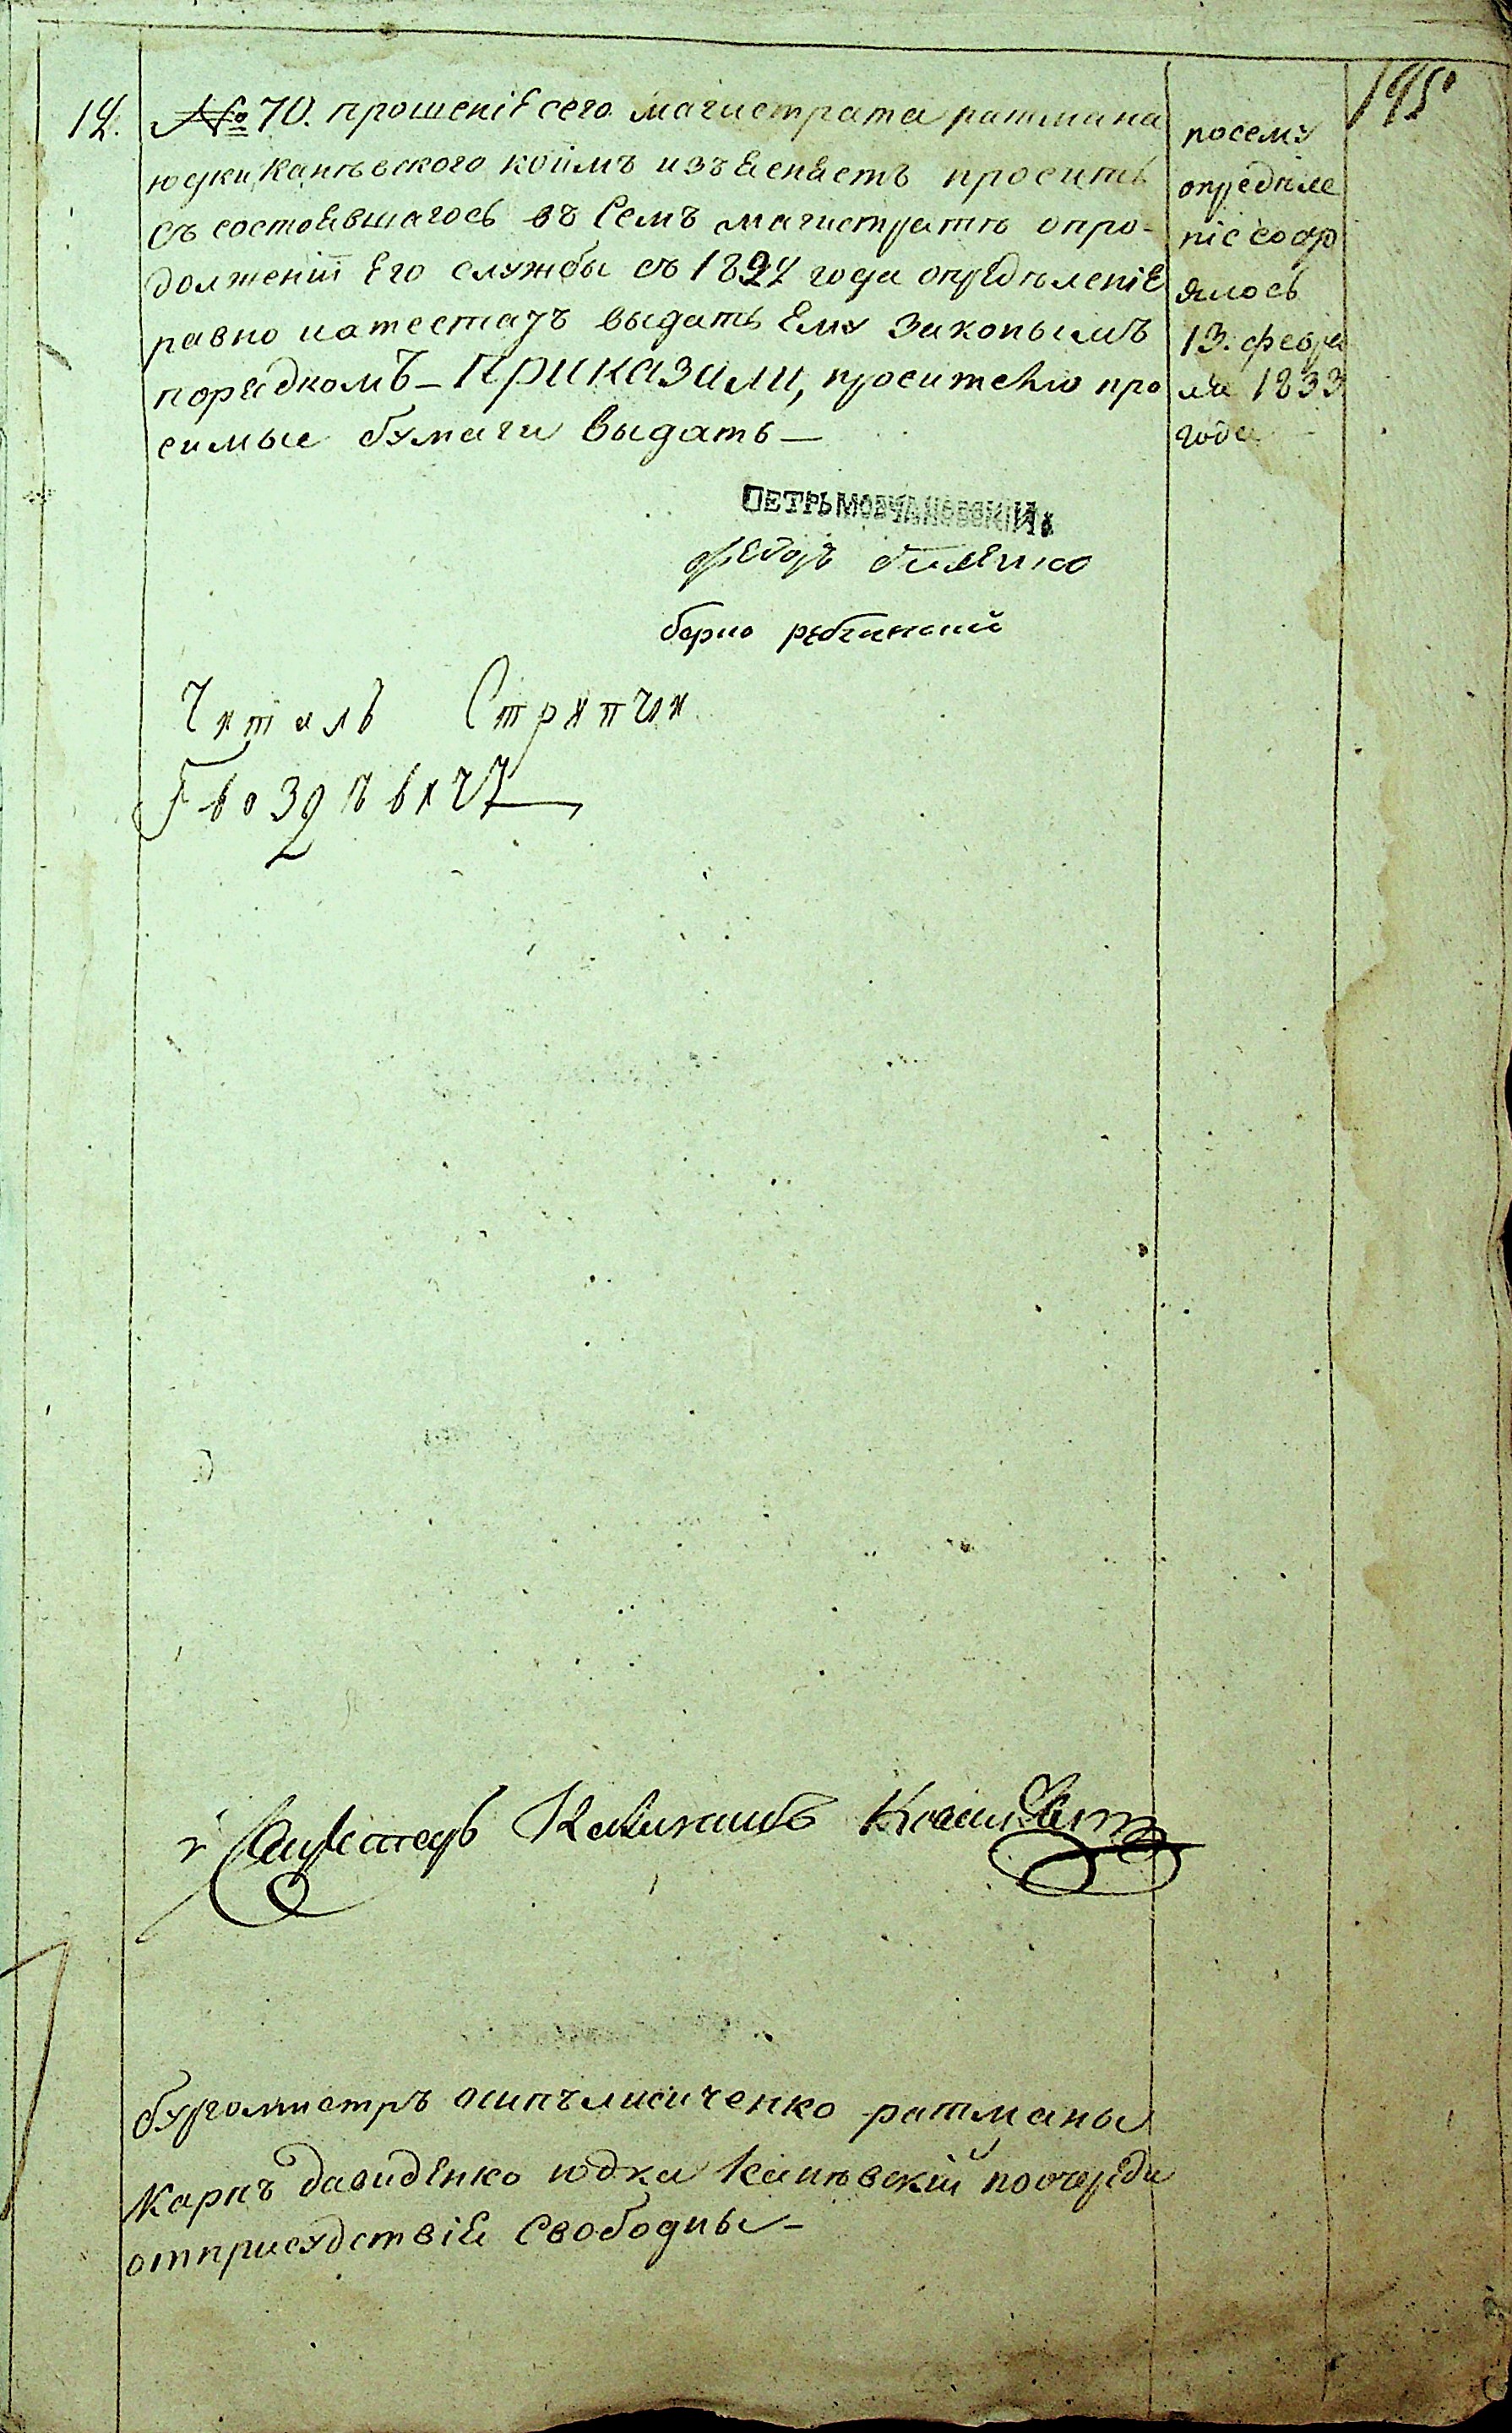 195
12. № 70. прошеніе сего магистрата ратмана
юдки Канѣвского коимъ изъясняетъ просить
съ состоявшагось въ семъ магистратѣ опро-
долженіи его службы съ 1827 года опредѣленіе
равно иатестатъ выдать ему законымъ
порядкомъ_ Приказали, просителю про
симые бумаги выдать_
посему
опредѣле
ніе
ялось
13. февра
ля 1833
года
ПЕТРЪ МОВЧАНОВСКІЙ
федоръ
берко
Читалъ Стряпчій
бургомистръ осипъ лисиченко ратманы
Карпъ давиденко юдка Каневскій поочереди
отприсудствія свободны_